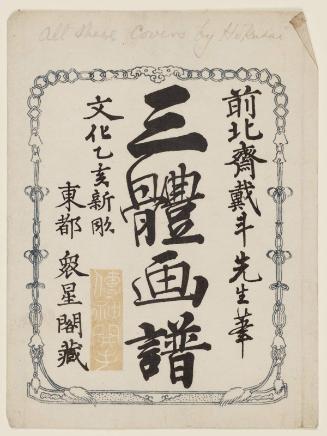 All these covers by Hokusai
前北齋戴斗先生筆
三體画譜
文化乙亥新彫
東都 衆星閣藏
傳神開手